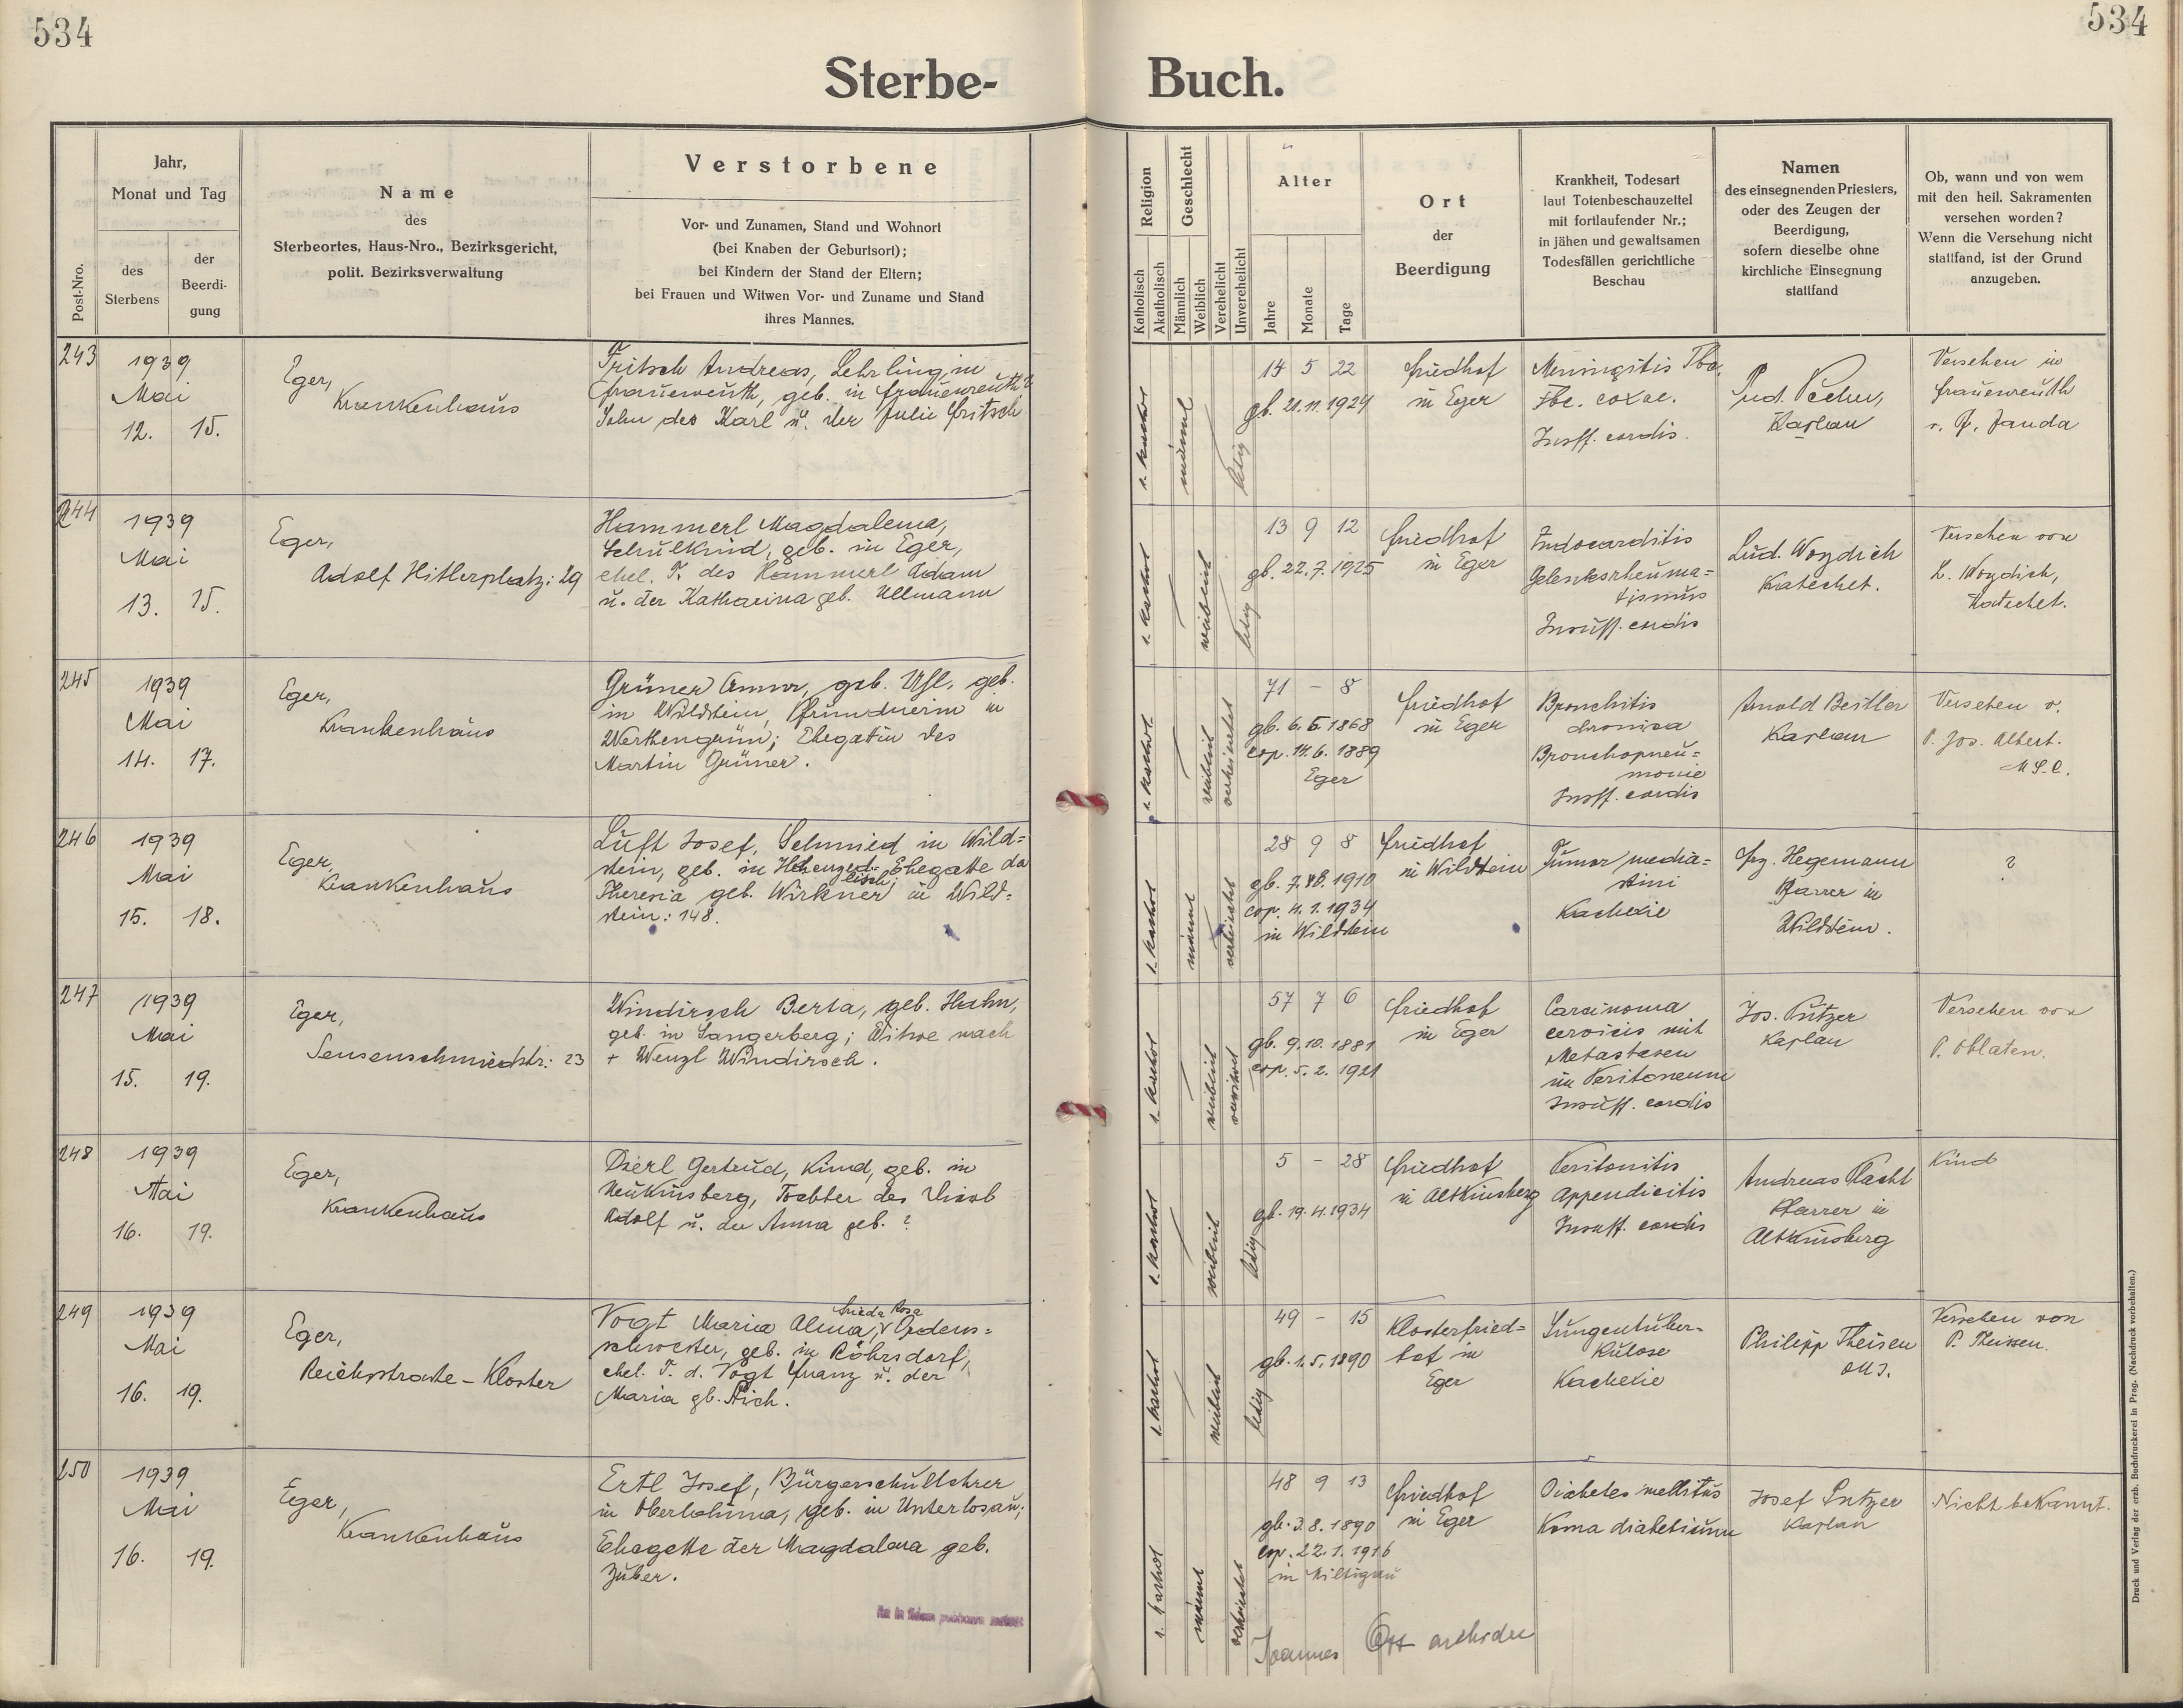 534
534
Sterbe-
Buch.
Post-Nro.
Jahr,
Monat und Tag
des
Sterbens
der
Beerdi-
gung
Name
des
Sterbeortes, Haus-Nro., Bezirksgericht,
polit. Bezirksverwaltung
Verstorbene
Vor- und Zunamen, Stand und Wohnort
(bei Knaben der Geburtsort);
bei Kindern der Stand der Eltern;
bei Frauen und Witwen Vor- und Zuname und Stand
ihres Mannes.
Religion
Katholisch
Akatholisch
Geschlecht
Männlich
Weiblich
Verehelicht
Unverehelicht
Alter
Jahre
Monate
Tage
Ort
der
Beerdigung
Krankheit, Todesart
laut Totenbeschauzettel
mit fortlaufender Nr.;
in jähen und gewaltsamen
Todesfällen gerichtliche
Beschau
Namen
des einsegnenden Priesters,
oder des Zeugen der
Beerdigung,
sofern dieselbe ohne
kirchliche Einsegnung
stattfand
Ob, wann und von wem
mit den heil. Sakramenten
versehen worden?
Wenn die Versehung nicht
stattfand, ist der Grund
anzugeben.
243
1939
Mai
12. 15.
Eger,
Krankenhaus
Fritsch Andreas, Lehrling in
Frauenreuth, geb. in Frauenreuth?
Sohn des Karl u. der Julie Fritsch
r. kathol
männl
ledig
14 5 22
gb. 21.11.1924
Friedhof
in Eger
Meningitis Tbc.
Tbc. coxae.
Insuff. cordis.
Lud. Pecher,
Kaplan
Versehen in
Frauenreuth
v. P. Janda
244
1939
Mai
13. 15.
Eger,
Adolf Hitlerplatz: 29
Hammerl Magdalena,
Schulkind, geb. in Eger,
ehel. T. des Hammerl Adam
u. der Katharina geb. Ullmann
r. kathol
weiblich
ledig
13 9 12
gb. 22.7.1925
Friedhof
in Eger
Endocarditis
Gelenksrheuma=
tismus
Insuff. cordis
Lud. Woydich
Katechet.
Versehen von
L. Woydich,
Katechet.
245
1939
Mai
14. 17.
Eger,
Krankenhaus
Grüner Anna, geb. Uhl, geb.
in Wildstein, Pfründnerin in
Werthengrün; Ehegattin des
Martin Grüner.
r. kathol.
weiblich
verheiratet
71 - 8
gb. 6.5.1868
cop. 14.6.1889
Eger
Friedhof
in Eger
Bronchitis
chronica
Bronchopneu=
monie
Insff. cordis
Arnold Beitler
Kaplan
Versehen v.
P. Jos. Albert.
246
1939
Mai
15. 18.
Eger,
Krankenhaus
Luft Josef, Schmied in Wild=
stein, geb. in Ehegatte da
Theresia geb. Wirkner in Wild=
stein: 148.
r. kathol
männl
verheiratet
28 9 8
gb. 1910
cop. 4.1.1934
in Wildstein
Friedhof
in Wildstein
Tumor media=
stini
Kachexie
Frz. Hegemann
Pfarrer in
Wildstein.
?
247
1939
Mai
15. 19.
Eger,
Sensenschmiedstr: 23
Windirsch Berta, geb. Hahn,
geb. in Sangerberg; Witwe nach
+ Wenzl Windirsch.
r. kathol
weiblich
verwitwet
57 7 6
gb. 9.10.1881
cop. 5.2.1921
Friedhof
in Eger
Carcinoma
cervicis mit
Metastasen
im Peritoneum
Insuff. cordis
Jos. Putzer
Kaplan
Versehen von
P. Oblaten.
248
1939
Mai
16. 19.
Eger,
Krankenhaus
Gertrud, Kind, geb. in
Neukinsberg, Tochter des
Adolf u. der Anna geb. ?
r. kathol
weiblich
ledig
5 - 28
gb. 19.4.1934
Friedhof
in Altkinsberg
Peritonitis
Appendicitis
Insuff. cordis
Andreas
Pfarrer in
Altkinsberg
Kind
249
1939
Mai
16. 19.
Eger,
Reichsstrasse - Kloster
Frieda Rosa
Vogt Maria Alma, Ordens=
schwester, geb. in Röhrsdorf,
ehel. T. d. Vogt Franz u. der
Maria gb.
r. kathol
weiblich
ledig
49 - 15
gb. 1.5.1890
Klosterfried=
hof in
Eger
Lungentuber=
kulose
Kachexie
Philipp Theisen
Versehen von
P. Theissen.
250
1939
Mai
16. 19.
Eger,
Krankenhaus
Ertl Josef, Bürgerschullehrer
in Oberlohma, geb. in Unterlosau;
Ehegatte der Magdalena geb.
Zuber.
r. kathol
männl
verheiratet
48 9 13
gb. 3.8.1890
cop. 22.1.1916
in
Friedhof
in Eger
Diabetes mellitus
Koma diabeticum
Josef Putzer
Kaplan
Nicht bekannt.
Joannes Ott
Druck und Verlag der erzb. Buchdruckerei in Prag. (Nachdruck vorbehalten.)